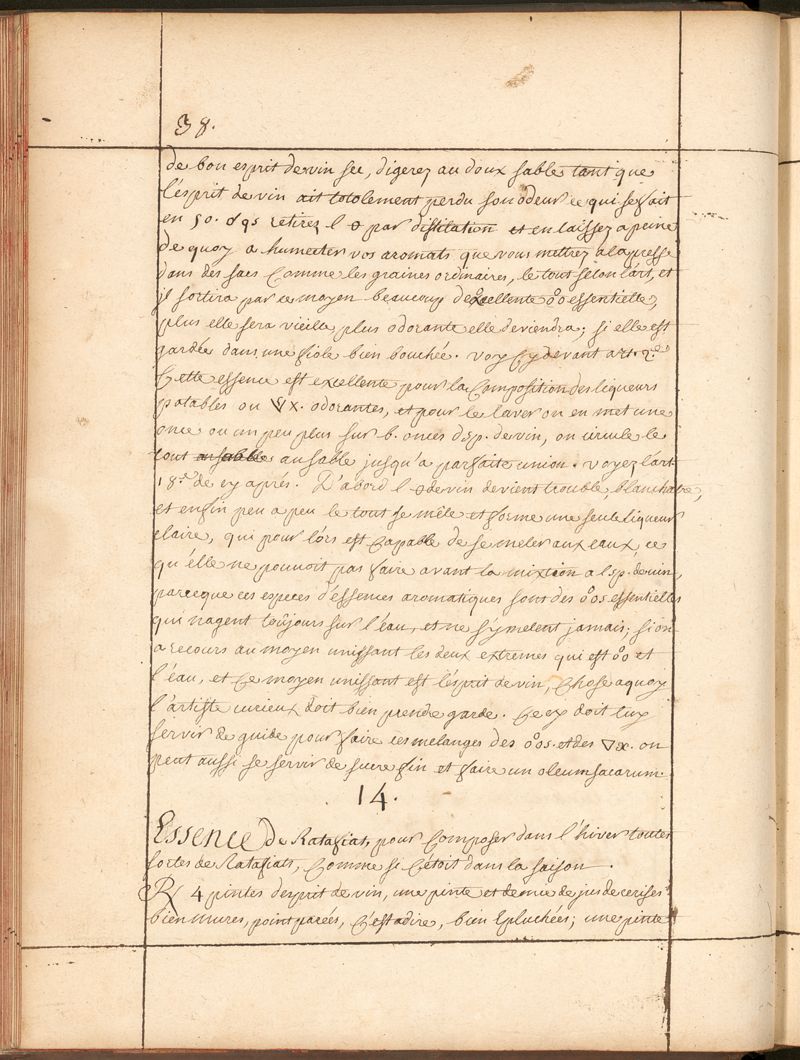 38.
de bon esprit de vin sec, digerez au doux sable tant que
l'esprit de vin ait totolement perdu son odeur ce qui se fait
en 50. retirez l par distilation et en laissez a peine
de quoy a humecter vos aromats que vous mettrez a la presse
dans des sacs Comme les graines ordinaires, le tout selon l'art, et
jl sortira par ce moyen beaucoup d'excellente essentielle,
plus elle sera vieille plus odorante elle deviendra; si elle est
gardée dans une fiole bien bouchée. voy Cy devant art.
Cette essence est excellente pour la Composition des liqueurs
potables ou ▽x. odorantes, et pour le laver on en met une
once ou un peu plus sur 6. onces d'sp. de vin, on circule le
tout au sable au sable jusqu'a parfaite union. voyez l'art
18.e de cy aprés. D'abord l de vin devient trouble, blanchatre,
et enfin peu a peu le tout se mêle et forme une seule liqueur
claire, qui pour lórs est Capable de se meler aux eaux, ce
qu'elle ne pouvoit pas faire avant la mixtion a l'sp. de vin,
parceque ces especes d'essences aromatiques sont des essentielles
qui nagent toûjours sur l'eau, et ne s'y melent jamais; si on
a recours au moyen unissant les deux extremes qui est et
l'eau, et Ce moyen unissant est l'esprit de vin, Chose a quoy
l'artiste curieux doit bien prendre garde. Cecy doit luy
servir de guide pour faire ces melanges des et des ▽x. on
peut aussi se servir de sucre fin et faire un oleum sacarum.
14.
Essence de Ratafiats pour Composer dans l'hiver toutes
sortes de Ratafiats, Comme si C'étoit dans la saison.
℞ 4 pintes d'esprit de vin, une pinte et demie de jus de cerises
bien mures, point parées, C'est a dire, bien Epluchées; une pinte